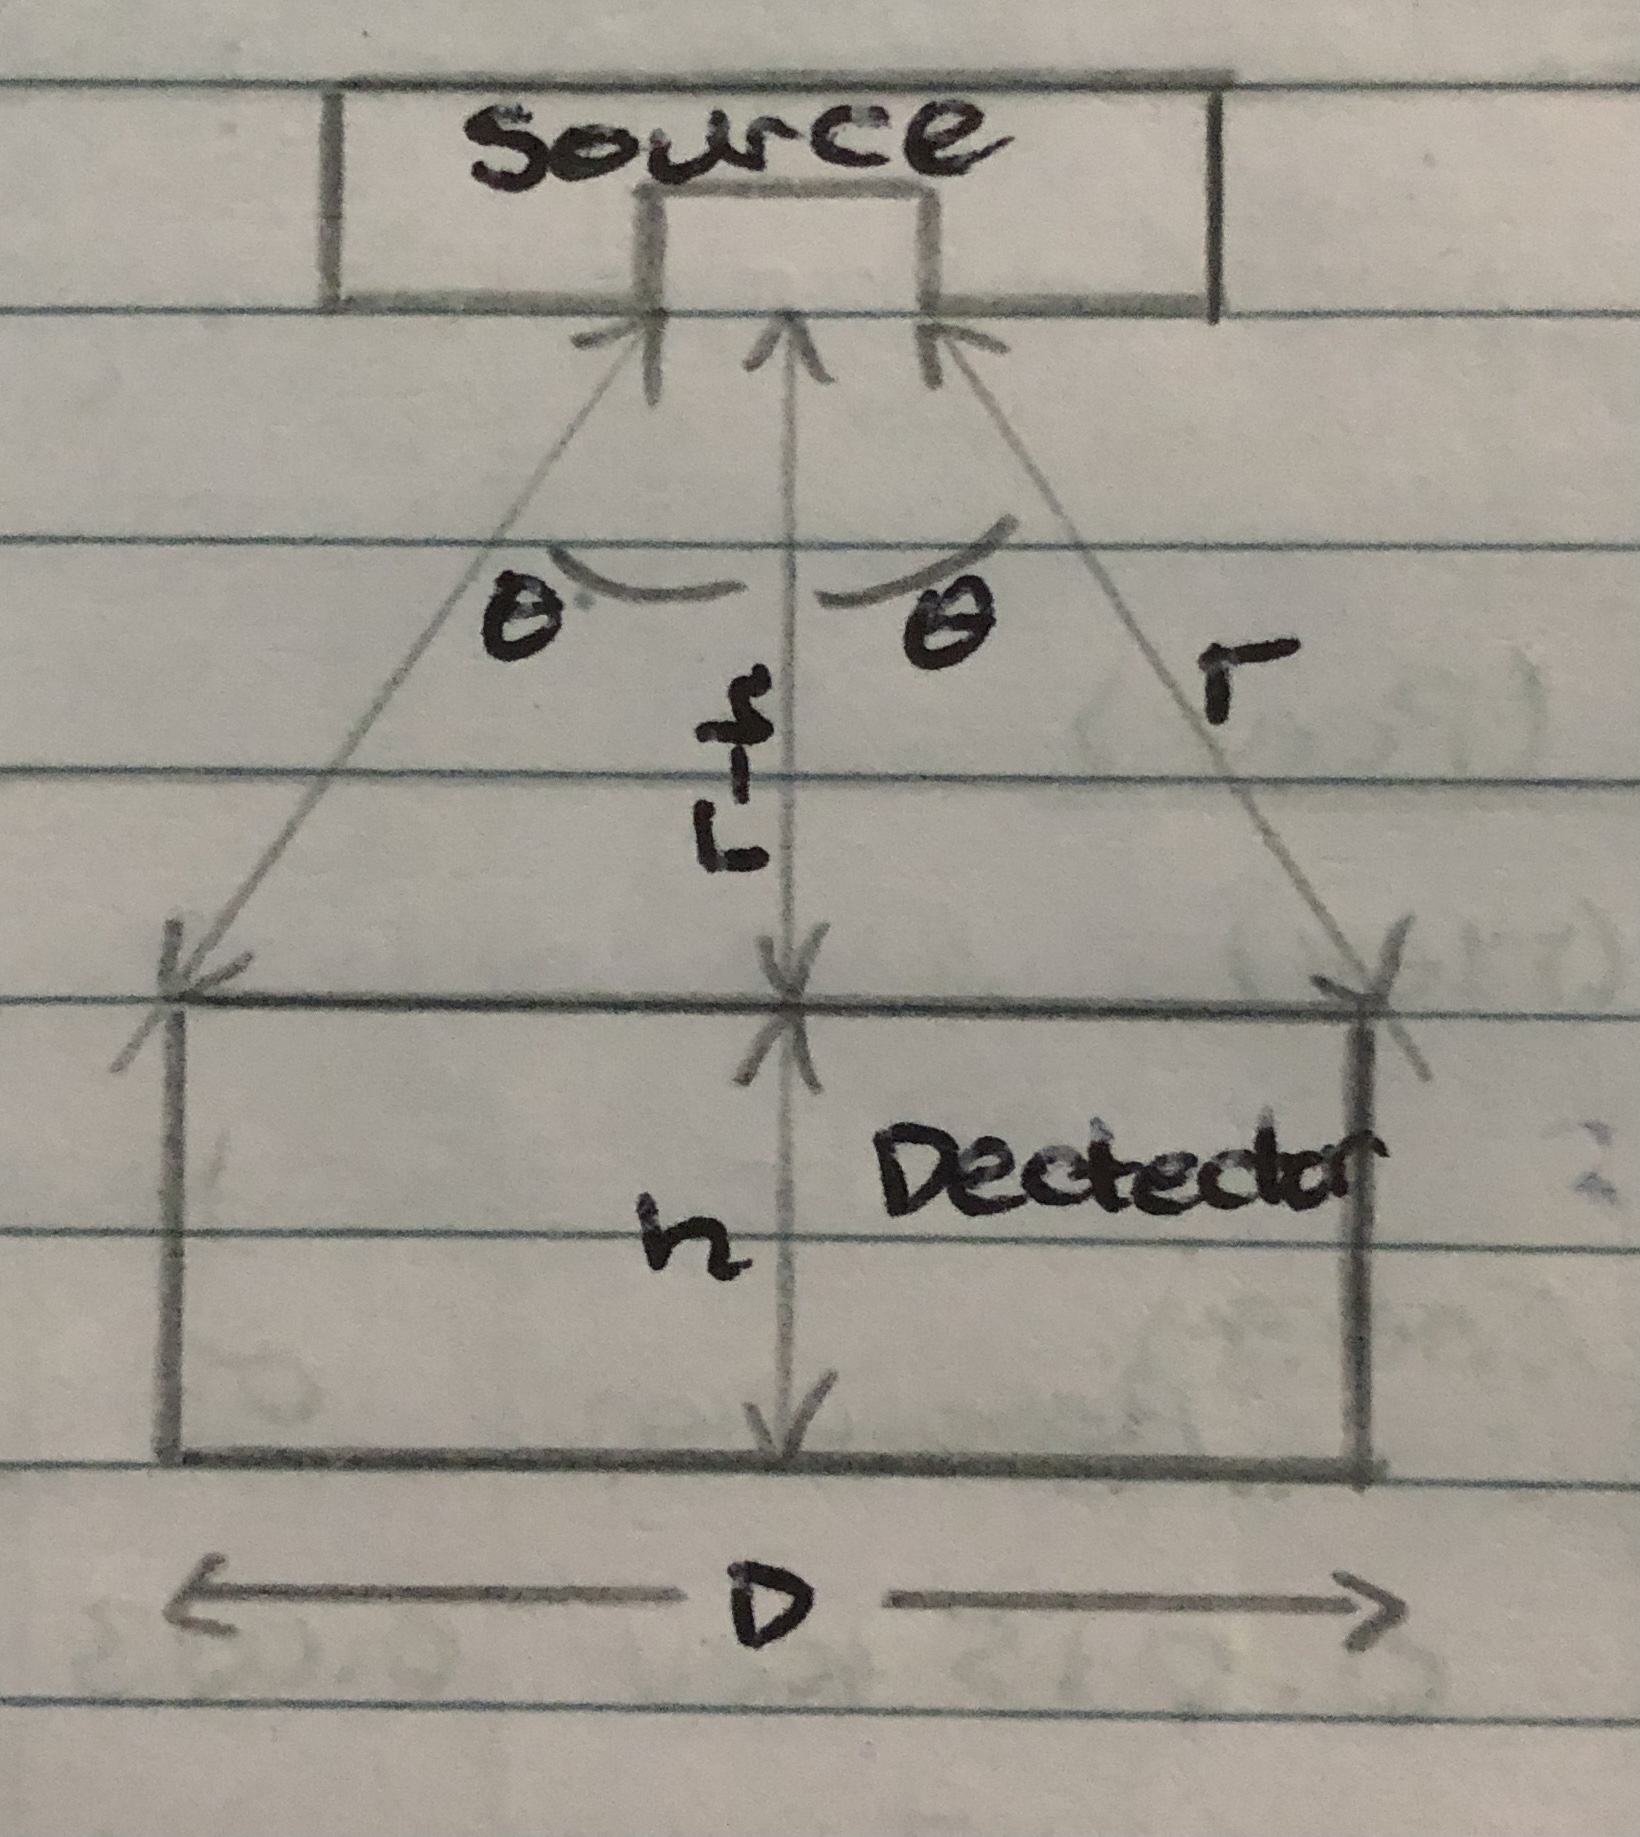 Source
θ
θ
r
h
Dectector
D